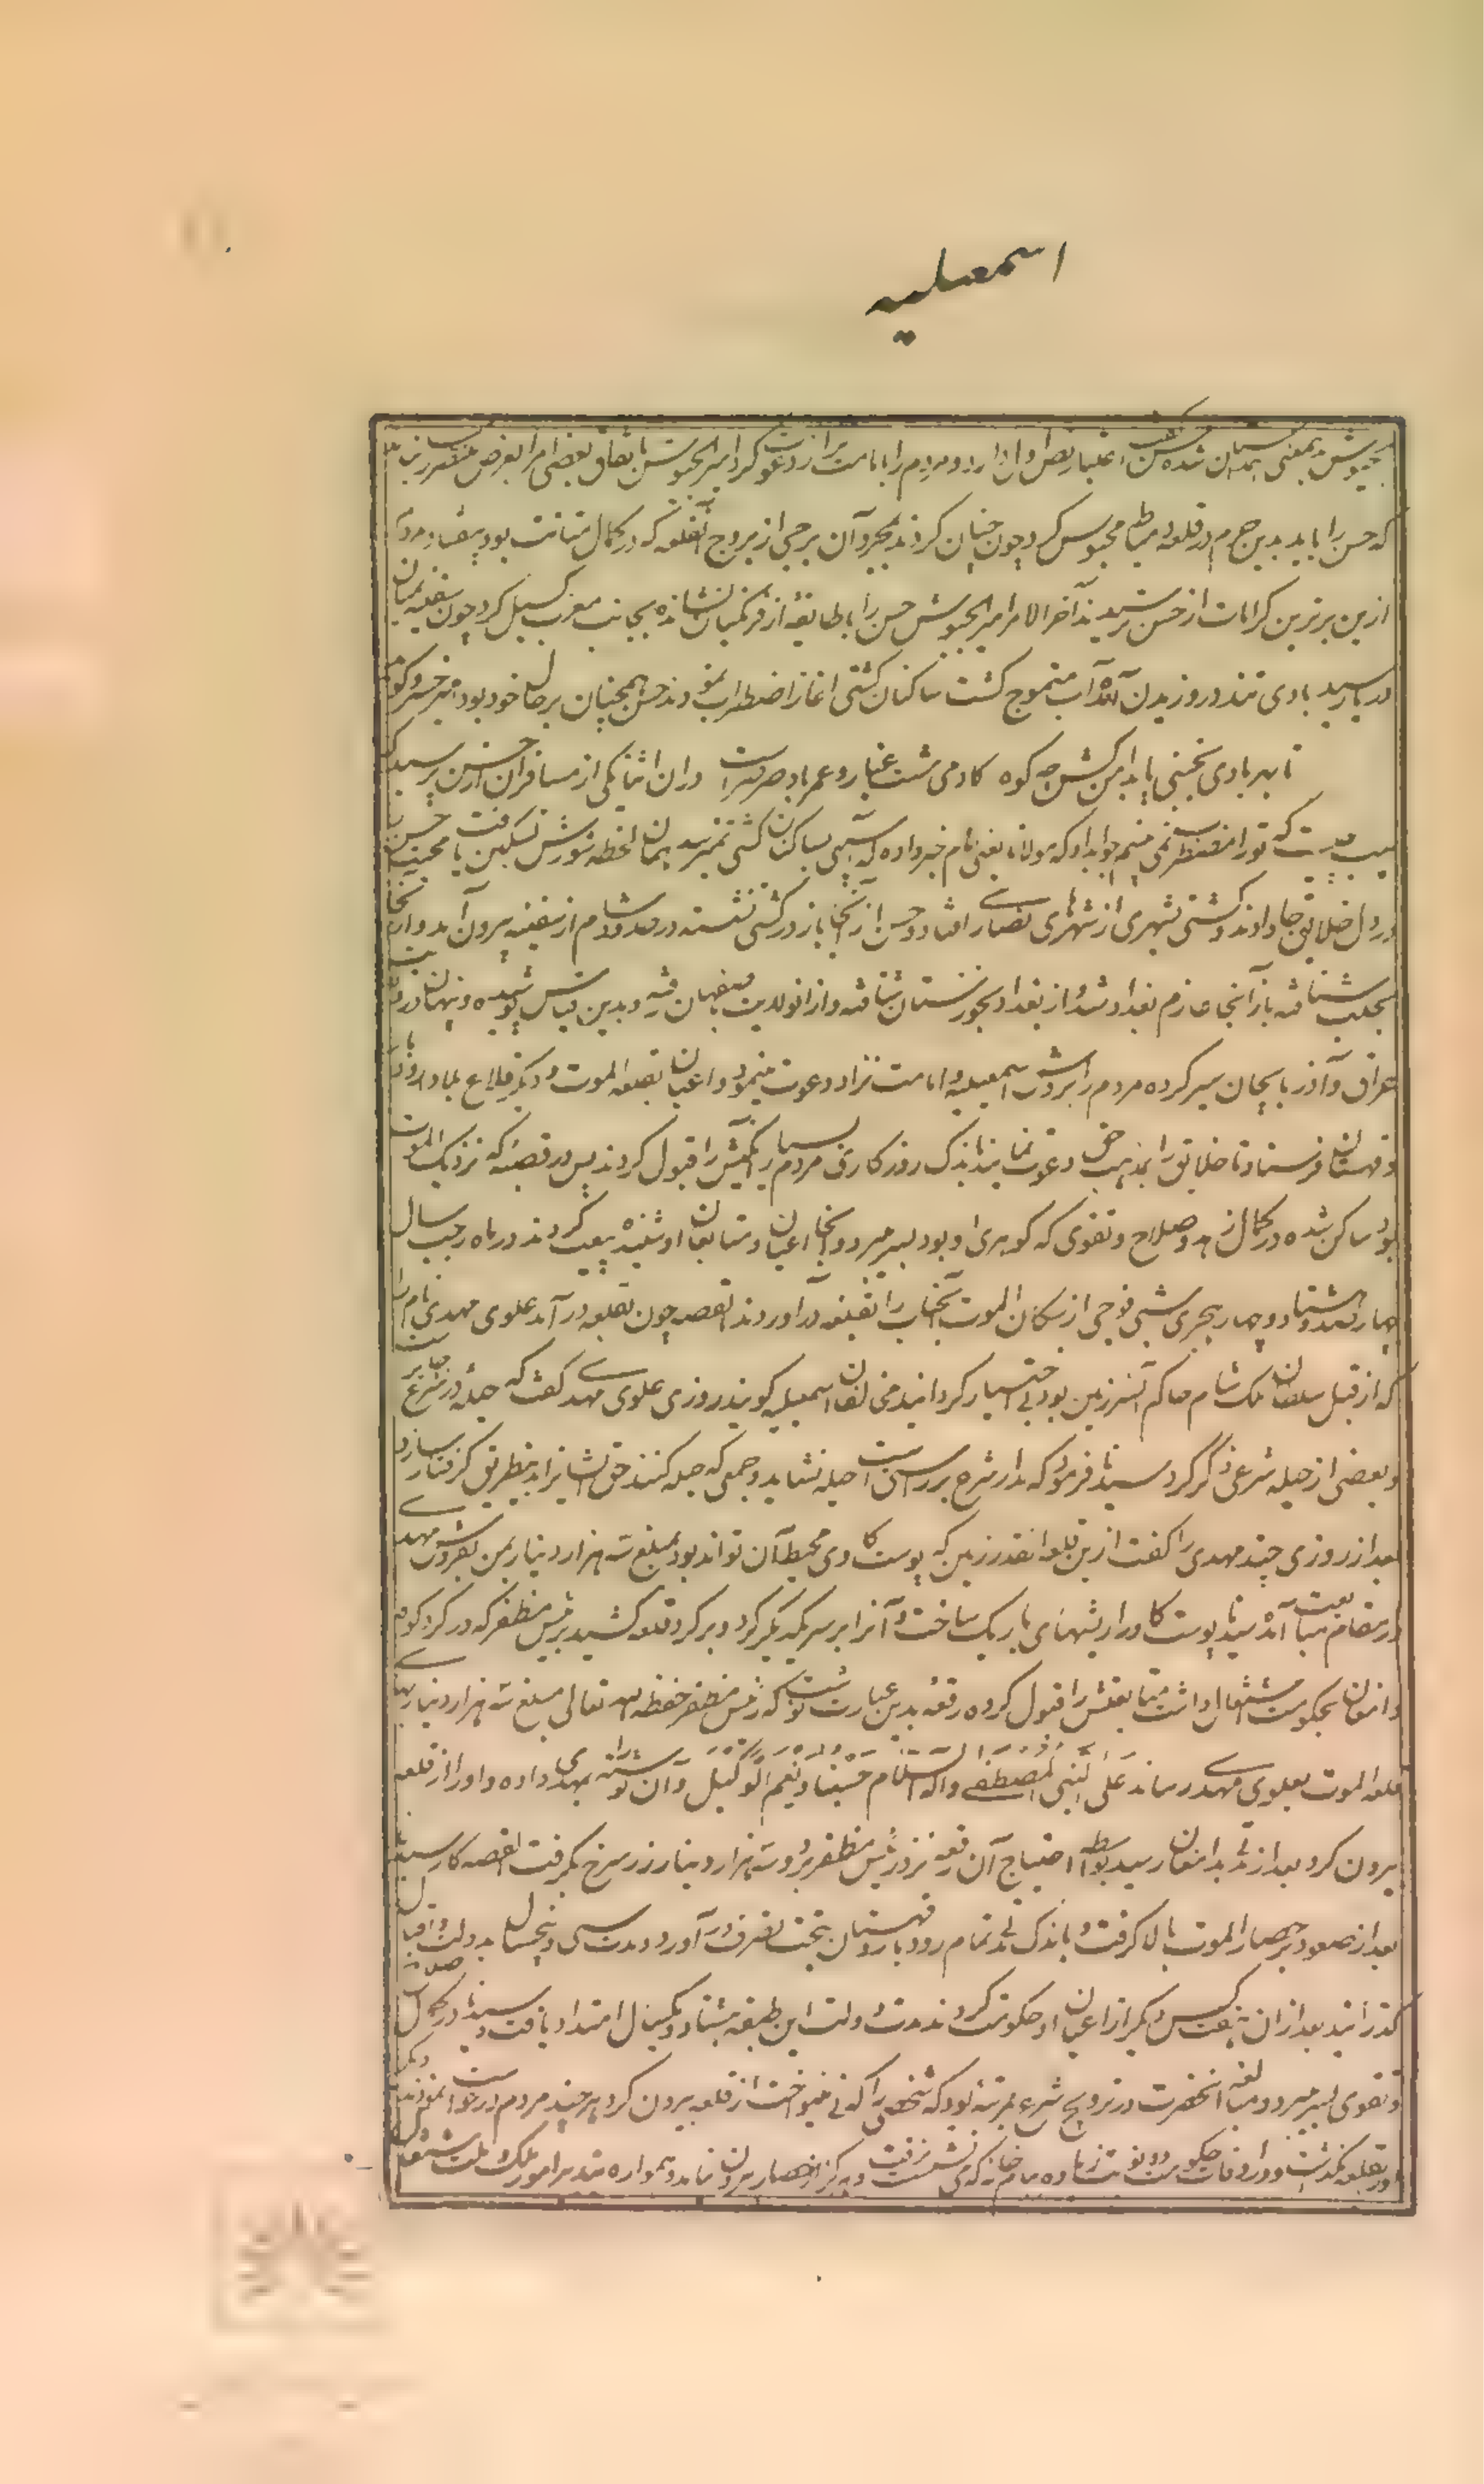 اسمعیلیه
الجیوش بدین معنی همداستان شده حسن گفت اعتبار نص اول دارد و مردم را بامامت نزار دعوت کرد امیر الجیوش باتفاق بعضی امرا بعرض مستنصر رسانید
که حسن را باید بدین جرم در قلعه دمیاط محبوس کرد چون چنان کردند بمجرد آن برجی از بروج آنقلعه که در کمال متانت بود بیفتاد مردم
ازین برترین کرامات از حسن ترسیدند آخر الامر امیر الجیوش حسن را با طایفهٔ از فرنگیان نشانده بجانب مغرب گسیل کرد چون سفینه بمیان
دریا رسید بادی تند در وزیدن آمده آب متموج گشت ساکنان کشتی آغاز اضطراب نمودند حسن همچنان برحال خود بود امیر خسرو گوید
تا بهر بادی نجنبی پا بدامن کش چو کوه کادمی مشت غبار و عمر باد صرصرست دران اثنا یکی از مسافران از حسن پرسید که
سبب چیست که تورا مضطرب نمی بینم جواب داد که مولانا یعنی امام خبر داده که آسیبی بساکنان کشتی نمیرسد همان لحظه شورش تسکین یافت محبت حسن
در دل خلایق جا داد و کشتی بشهری از شهرهای نصارا افتاد و حسن از آنجا باز در کشتی نشسته در حدود شام از سفینه بیرون آمد و از آنجا
بحلب شتافته باز از آنجا عازم بغداد شد و از بغداد بخوزستان شتافته و از انولایت باصفهان رفته و بدین قیاس پوشیده و پنهان در ولایت
عراق و آذربایجان سیر کرده مردم را بروش اسمعیلیه و امامت نزار دعوت مینمود و داعیان بقلعه الموت و دیگر قلاع بلاد رودبار
و قهستان فرستاد تا خلایق را بمذهب حق دعوت نمایند باندک روزگاری مردم بسیار آنکیش را قبول کردند پس در قصبهٔ که نزدیک الموت
بود ساکن شده در کمال زهد و صلاح و تقوی که گوهری او بود بسر میبرد و آنجا اعیان و متابعان او شنیده بیعت کردند در ماه رجب سال
چهارصد و هشتاد و چهار هجری شبی فوجی از سکان الموت آنجناب را بقلعه درآوردند القصه چون بقلعه درآمد علوی مهدی نام را
که از قبل سلطان ملک شاه حاکم آنسرزمین بود بی اختیار گردانید مخالفان اسمعیلیه گویند روزی علوی مهدی گفت که حیله در شرع جایز است
و بعضی از حیله شرعی ذکر کرد سیدنا فرمود که مدار شرع بر راستی است حیله نشاید و جمعی که حیله کنند حق ایشانرا بدینطریق گرفتار سازد
بعد از روزی چند مهدی را گفت ازین قلعه آنقدر زمین که پوست گاوی محیط آن تواند بود بمبلغ سه هزار دینار بمن بفروش مهدی
در مقام مبایعت آمده سیدنا پوست گاو را ریشهای باریک ساخت و آنرا بر سر یکدیگر کرد و بر گرد قلعه کشید برئیس مظفر که در گردکوه
و دامغان بحکومت اشتغال داشت متابعتش را قبول کرده رقعه بدین عبارت نوشت که رئیس مظفر حفظه الله تعالی مبلغ سه هزار دینار بهای
قلعه الموت بعلوی مهدی رساند عَلَی النَّبِیِ المُصطَفی وآلِهِ السَّلام حَسبُنا وَ نِعمَ الوَکیل و آن نوشته را بمهدی داده و او را از قلعه
بیرون کرد بعد از مدتی بدامغان رسید بواسطه احتیاج آن رقعه نزد رئیس مظفر برد و سه هزار دینار زر سرخ بگرفت القصه کار سیدنا
بعد از صعود بر حصار الموت بالا گرفت و باندک مدت تمام رودبار و قهستان بتحت تصرف درآورد و مدت سی و پنجسال بدولت و اقبال
گذرانید بعد از ان هفت کس دیگر از اعیان او حکومت کردند مدت دولت این طبقه هشتاد و یکسال امتداد یافت و سیدنا در کمال صلاح
و تقوی بسر میبرد و مبالغه آنحضرت در ترویج شرع بمرتبه بود که شخصی را که نی مینواخت از قلعه بیرون کرد هر چند مردم درخواست نمودند دیگر
در قلعه نگذاشت و در اوقات حکومت دو نوبت زیاده ببام خانه که می نشست نرفت و هرگز از حصار بیرون نیامد و همواره بتدبیر امور ملک و ملت مشغول